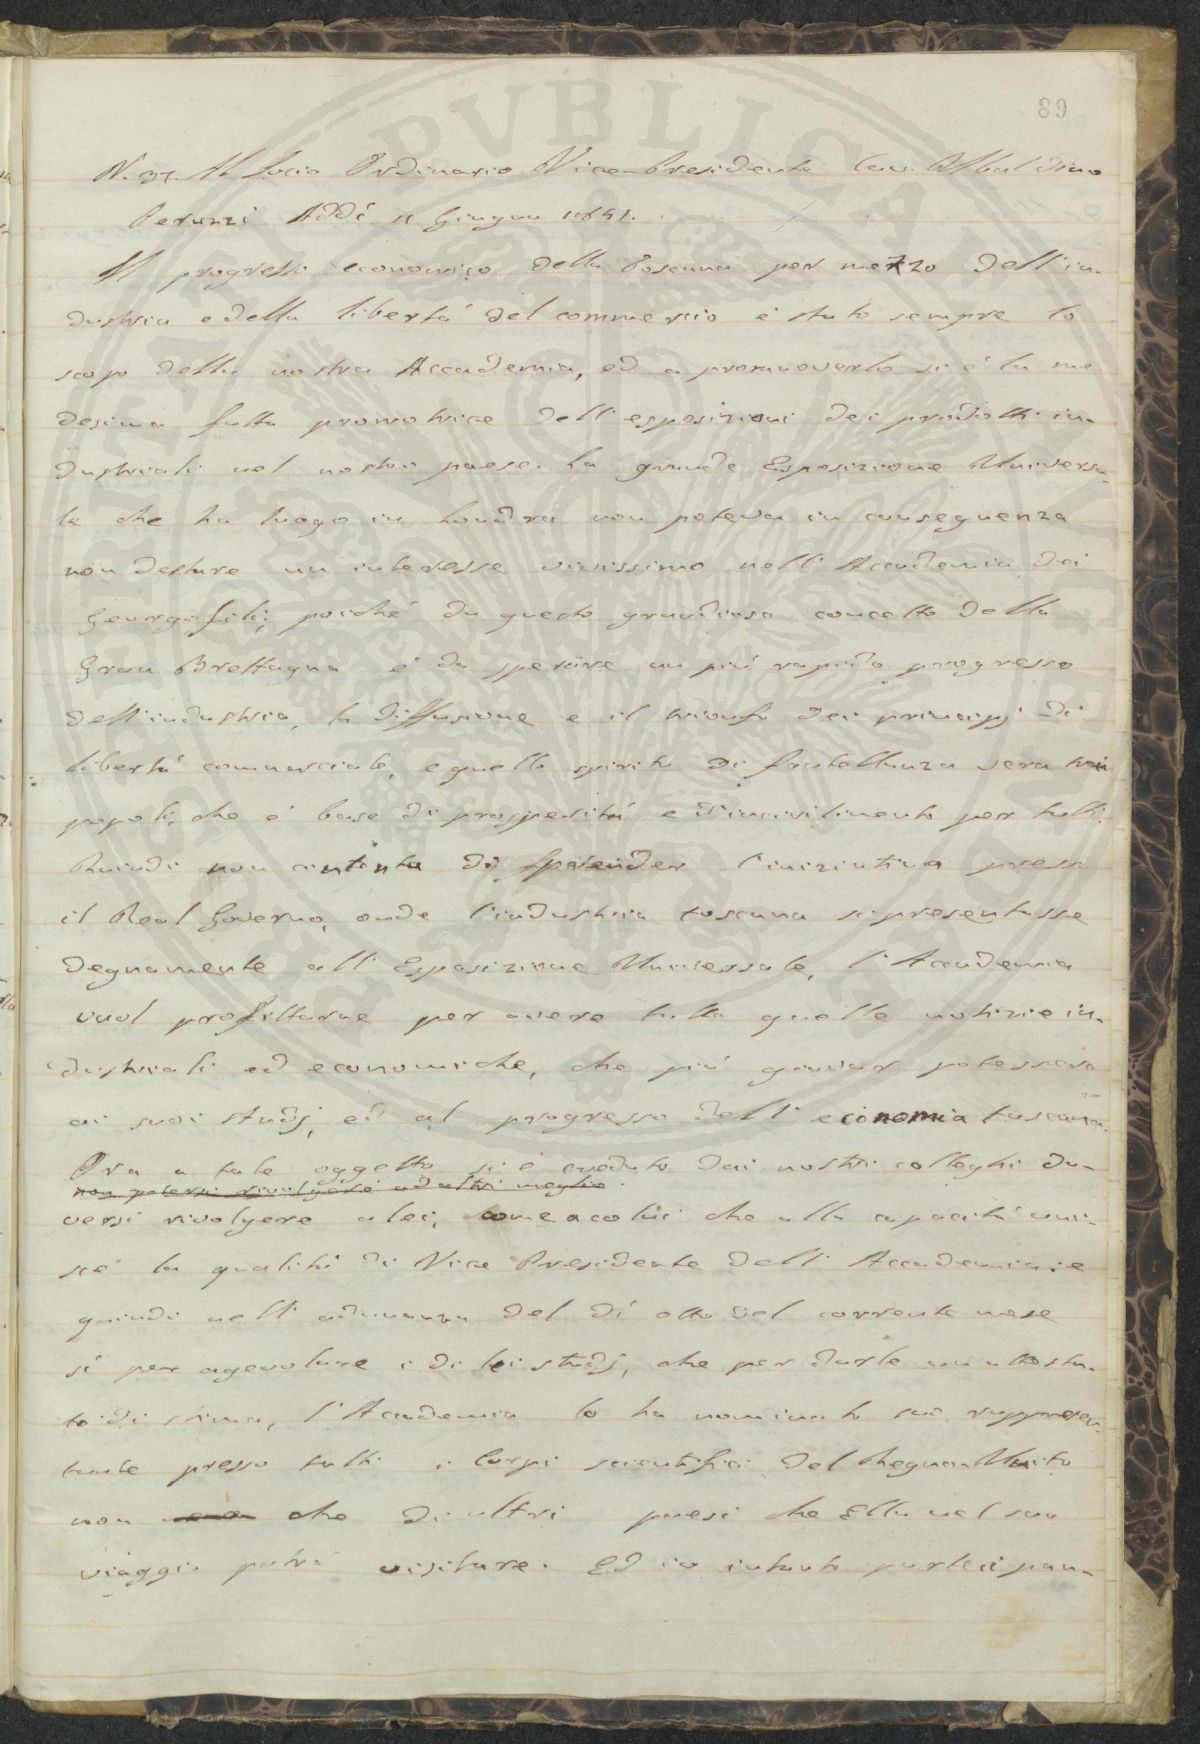 89
N. 37. Al Socio Ordinario Vice-Presidente Cav. Ubaldino
Peruzzi Addì 11 Giugno 1851.
Il progresso economico della Toscana per mezzo dell'in-
dustria e della libertà del commercio è stato sempre lo
scopo della nostra Accademia, ed a promuoverlo si è la me
desima fatta promotrice dell'esposizioni dei prodotti in-
dustriali nel nostro paese. La grande Esposizione Universa-
le che ha luogo in Londra non poteva in conseguenza
non destare un interesse vivissimo nell'Accademia dei
Georgofili; poiché da questo grandioso concetto della
Gran Brettagna è da sperare un più rapido progresso
dell'industria, la diffusione e il trionfo dei principj di
libertà commerciale, e quello spirito di fratellanza vera trai
popoli, che è base di prosperità e d'incivilimento per tutti.
Quindi non contenta di prender l'iniziativa presso
il Real Governo, onde l'industria toscana si presentasse
degnamente all'Esposizione Universale, l'Accademia
vuol profittarne per avere tutte quelle notizie in-
dustriali ed economiche, che più giovar potessero
ai suoi studj, ed al progresso dell'economia toscana.
Ora a tale oggetto si è creduto dai nostri colleghi do-
non potersi rivolgere ad altri meglio.
versi rivolgere a lei, come a colui che alla capacità uni-
sce la qualità di Vice Presidente dell'Accademia: e
quindi nell'adunanza del dì otto del corrente mese
sì per agevolare i di lei studj, che per darle un attesta-
to di stima, l'Accademia lo ha nominato suo rappresen-
tante presso tutti i Corpi scientifici del Regno-Unito
non che di altri paesi che Ella nel suo
viaggio potrà visitare. Ed io intanto partecipan-